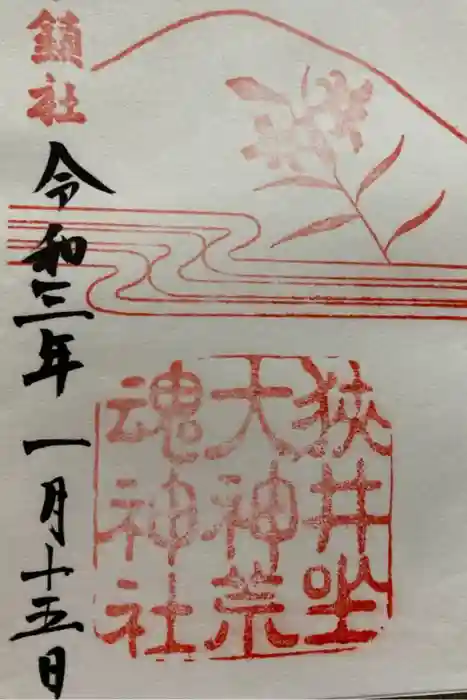 狭井坐
大神荒
魂神社
鎮社
令和三年一月十五日